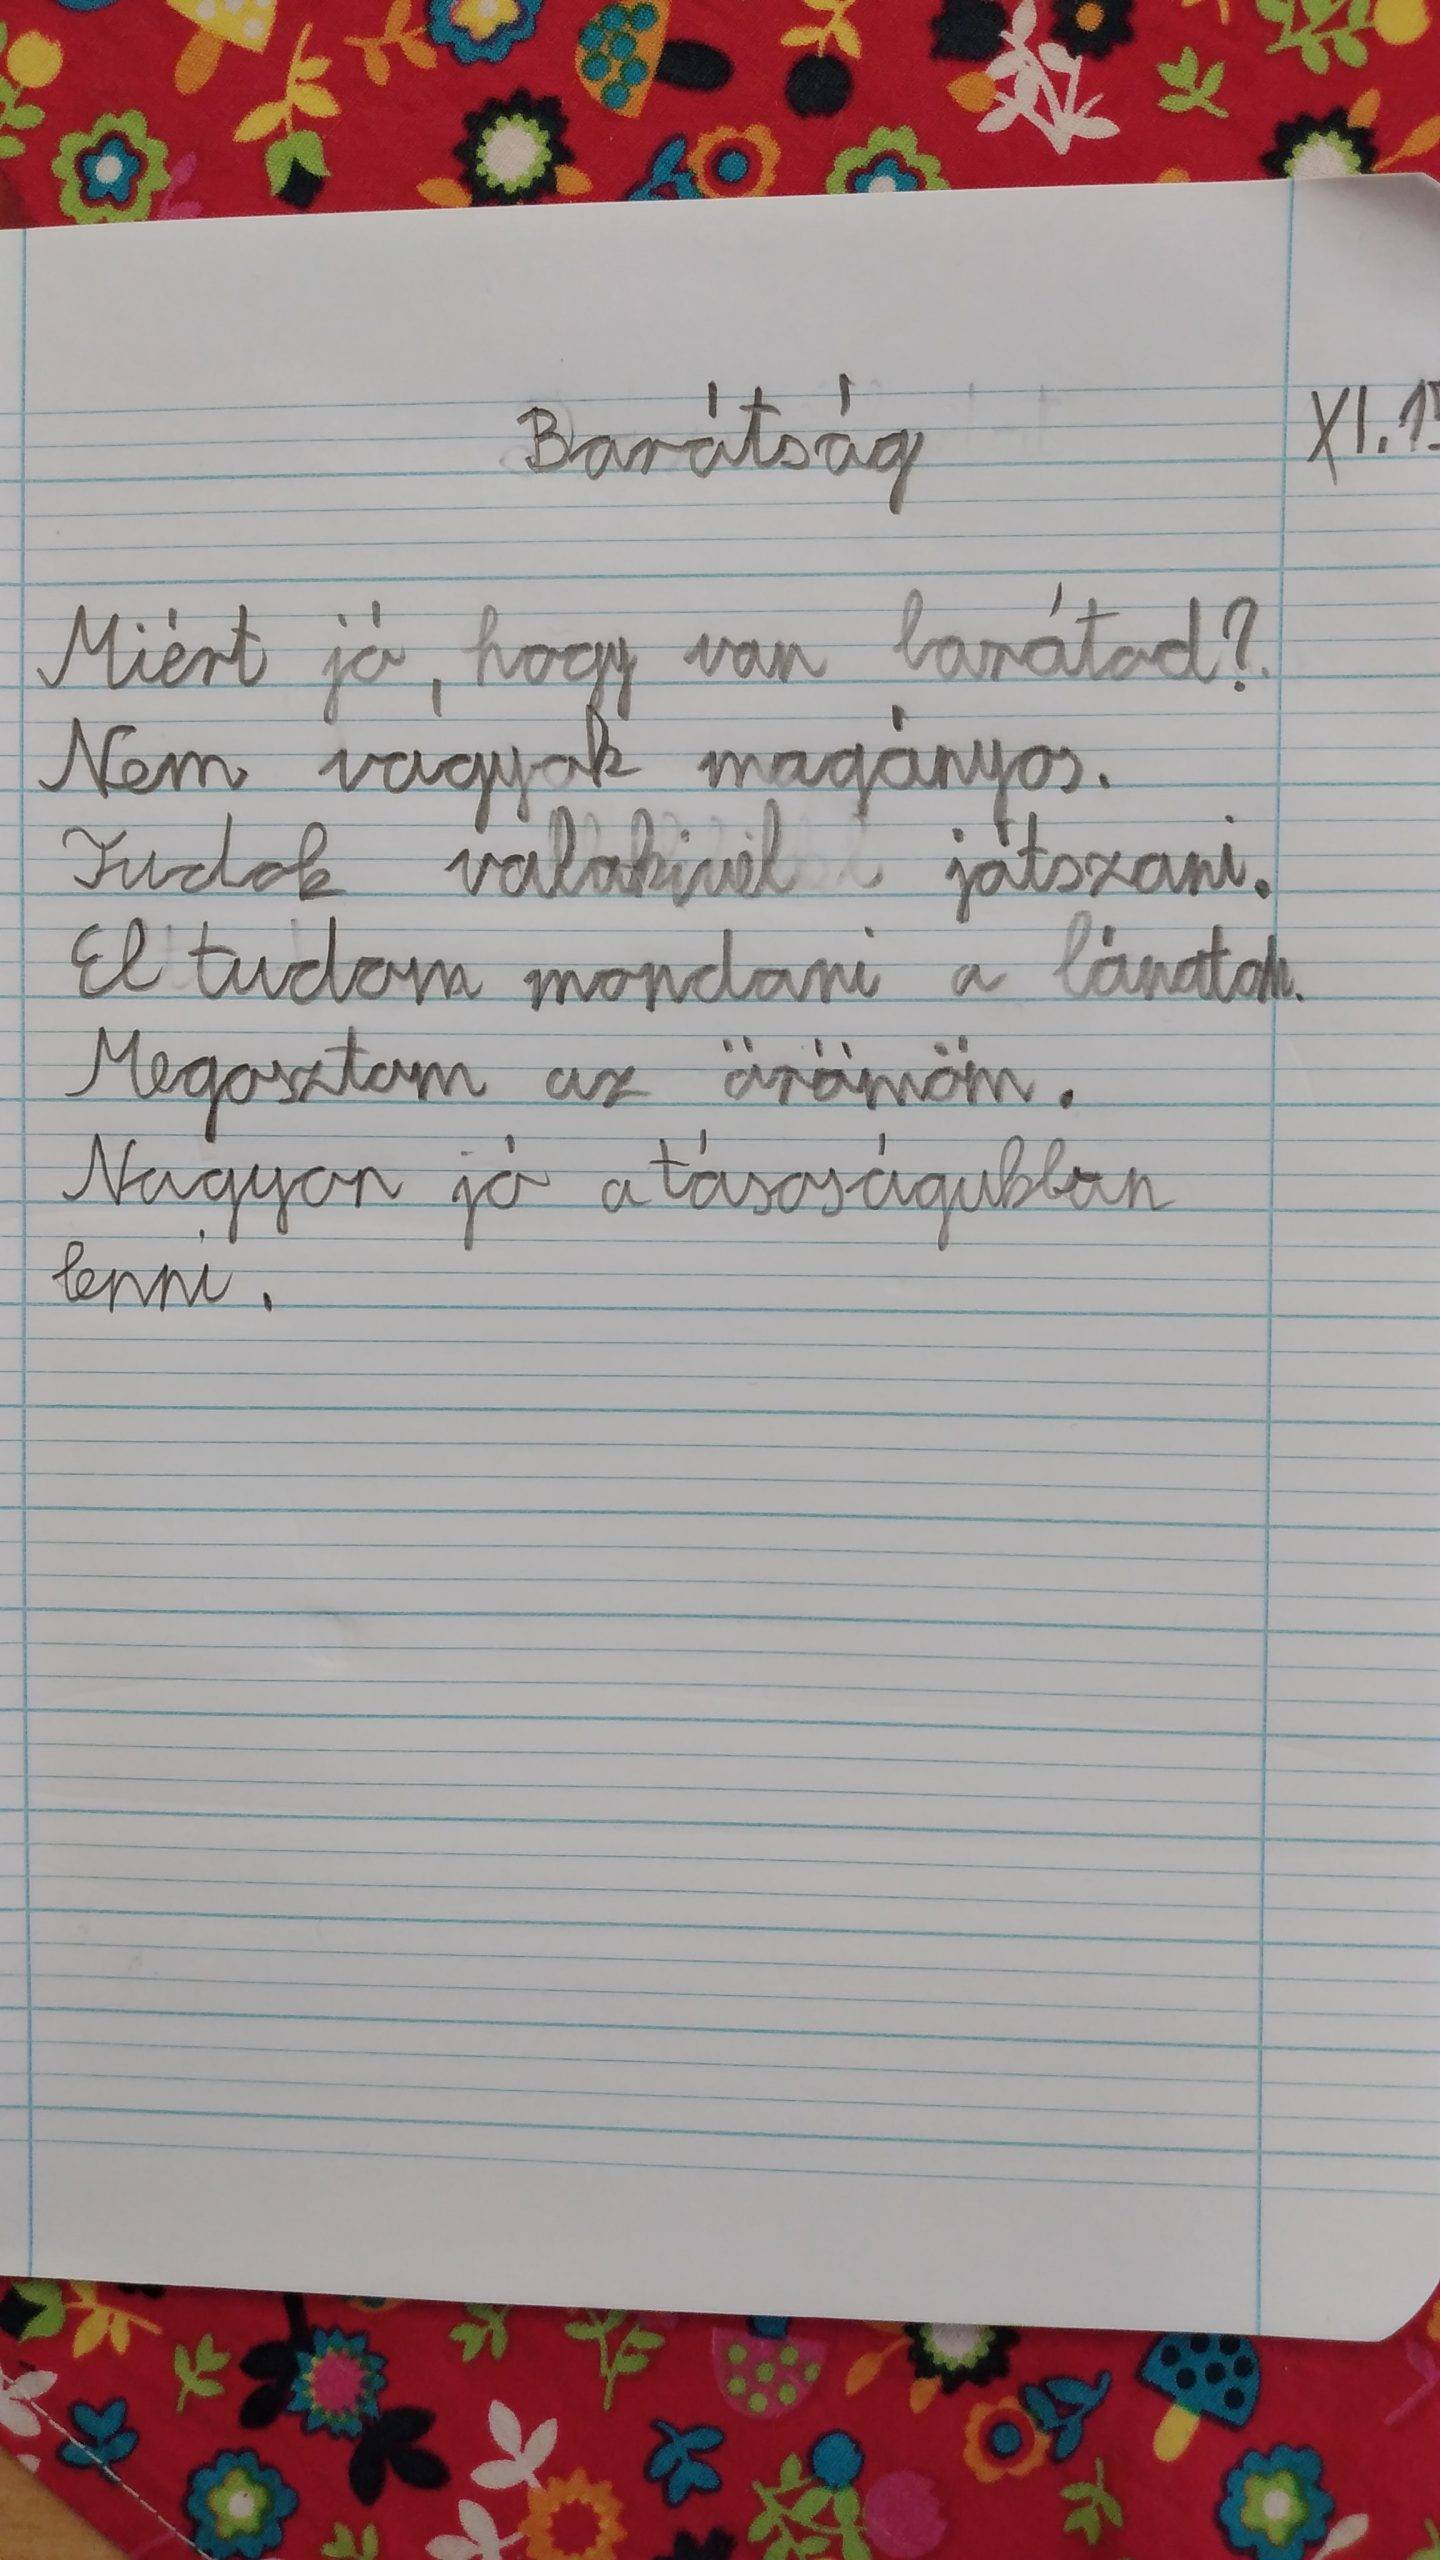 Barátság
XI.15
Miért jó, hogy van barátod?
Nem vagyok magányos.
Tudok valakivel játszani.
El tudom mondani a
Megosztom az örömöm.
Nagyon jó a
lenni.